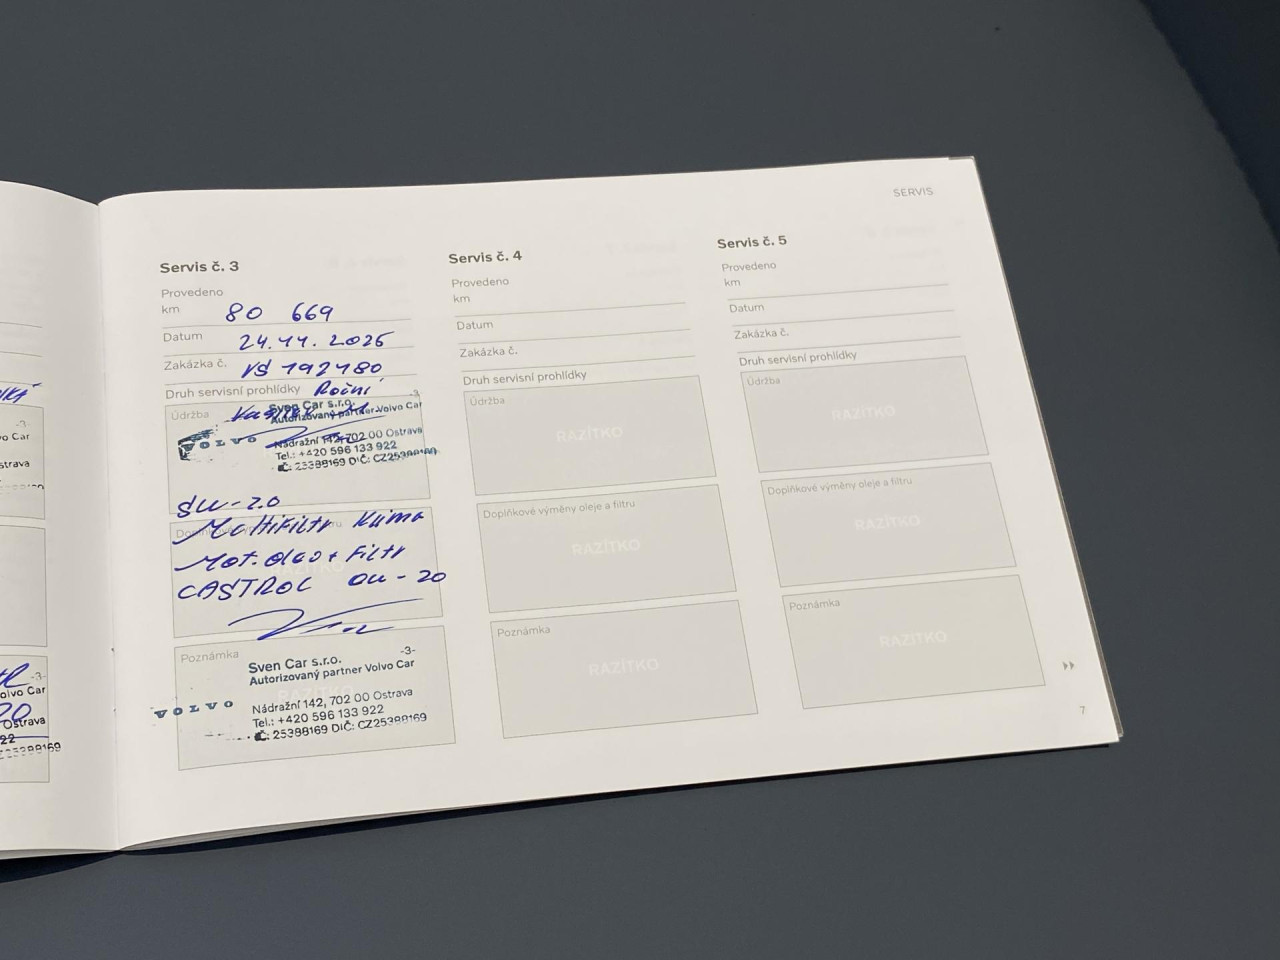 SERVIS
Servis č. 3
Provedeno
km 80 669
Datum 24.11.2025
Zakázka č. VS 192480
Druh servisní prohlídky Roční
Údržba
-3-
Sven Car s.r.o.
Autorizovaný partner Volvo Car
VOLVO
Nádražní 142, 702 00 Ostrava
Tel.: +420 596 133 922
IČ: 25388169 DIČ: CZ25388169
SW-2.0
Multifiltr Klima
Mot. olej + Filtr
CASTROL 0W-20
Poznámka
-3-
Sven Car s.r.o.
Autorizovaný partner Volvo Car
VOLVO
Nádražní 142, 702 00 Ostrava
Tel.: +420 596 133 922
IČ: 25388169 DIČ: CZ25388169
Servis č. 4
Provedeno
km
Datum
Zakázka č.
Druh servisní prohlídky
Údržba
RAZÍTKO
Doplňkové výměny oleje a filtru
RAZÍTKO
Poznámka
RAZÍTKO
Servis č. 5
Provedeno
km
Datum
Zakázka č.
Druh servisní prohlídky
Údržba
RAZÍTKO
Doplňkové výměny oleje a filtru
RAZÍTKO
Poznámka
RAZÍTKO
7